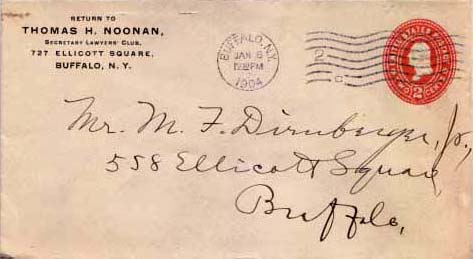 RETURN TO
THOMAS H. NOONAN,
SECRETARY LAWYERS' CLUB,
727 ELLICOTT SQUARE,
BUFFALO, N. Y.
BUFFALO, N.Y.
JAN 6
1904
UNITED STATES POSTAGE
2
TWO CENTS
Mr. M. F. Dirnberger, Jr.,
558 Ellicott Square,
Buffalo,